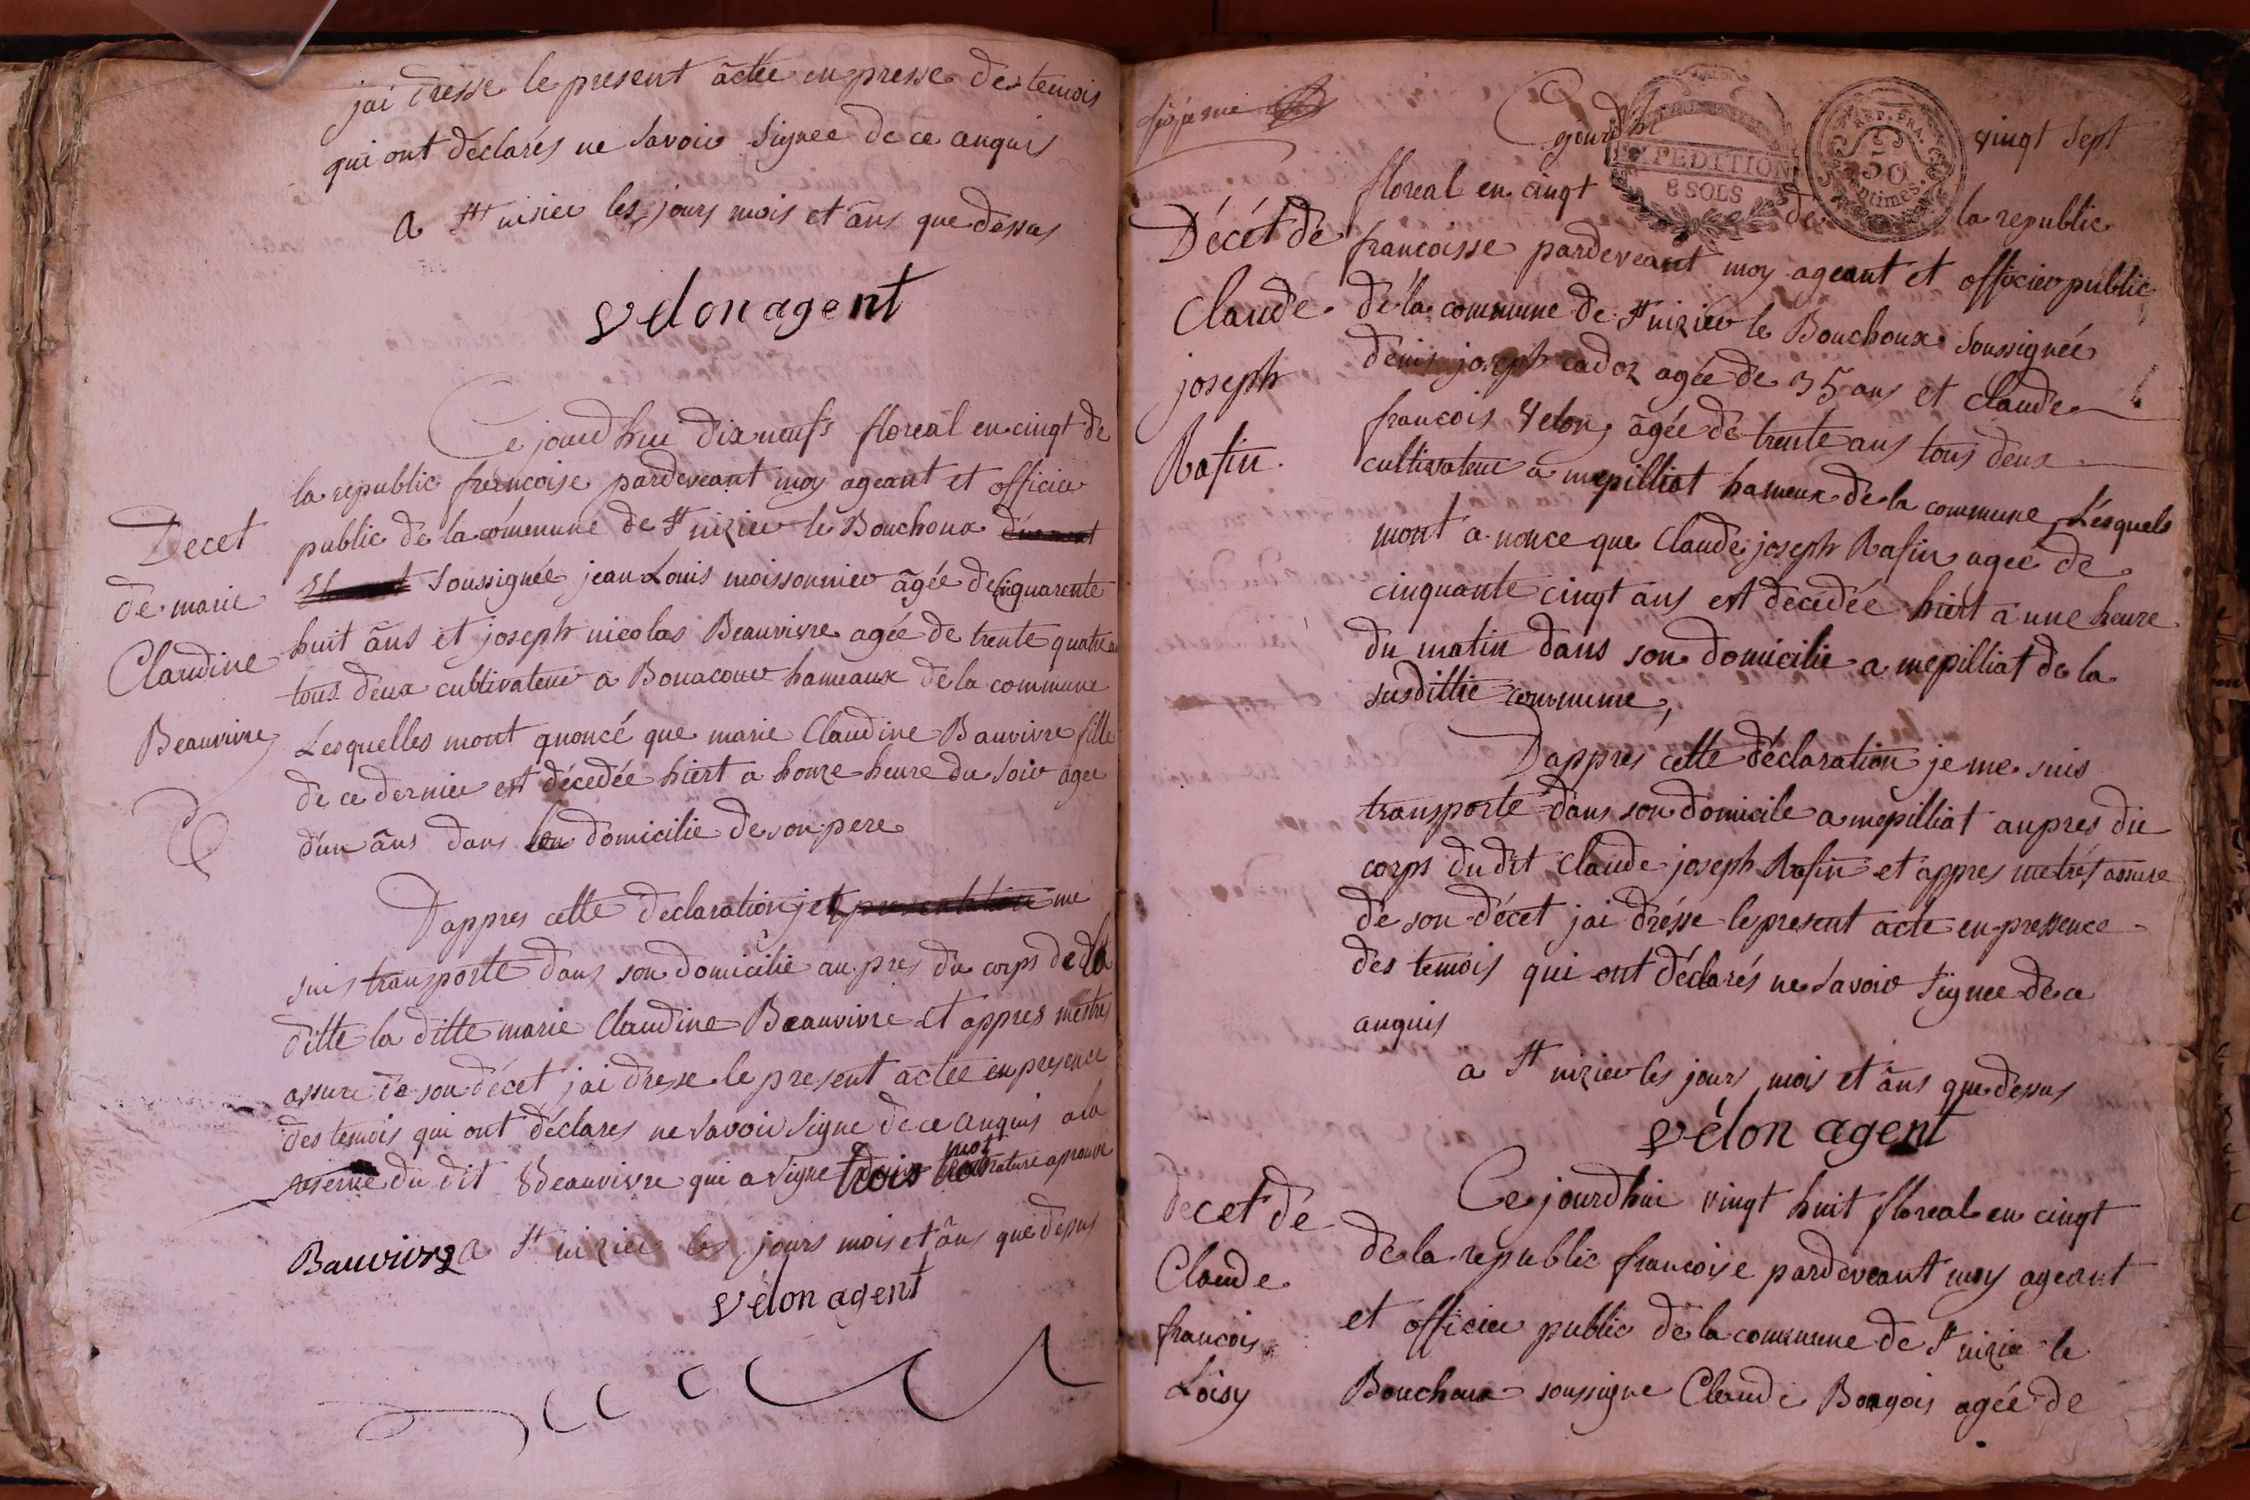 jai dresse le present acte en presse des temois
qui ont declarés ne savoir signee de ce anquis
a St nisier les jours mois et ans que dessus
velon agent
Ce jourdhui dix neufs floreal en cinqt de
la republic francoise pardeveant moy ageant et officier
public de la commune de St nizier le Bouchoux
Decet
soussignée jean Louis moissonnier âgée de quarente
de marie
huit âns et joseph nicolas Beauvivre agée de trente quatre
Claudine
tous deux cultivateur a Bonacour hameaux de la commune
Beauvivre
Lesquelles mont anoncé que marie Claudine Bauvivre fille
de ce dernier est décedée hiert a honze heure du soir agee
d'un âns dans domicilie de son pere
Dappres cette declaration je me
suis transporte dans son domicilie au pres du corps de la
ditte la ditte marie Claudine Beauvivre et appres mestres
assure de son décet jai drese le present actee en presence
des temois qui ont déclares ne savoir signe de ce anquis a la
reserve du dit Beauvivre qui a signe trois mot rature aprouve
Bauvivre a St nizier les jours mois et âns que desus
vélon agent
Ce jourdhui vingt sept
EXPEDITION
8 SOLS
REP. FRA.
50
centimes
floreal en cinqt de la republic
Décét de
francoisse pardeveant moy ageant et officier public
Claude
de la commune de St nizier le Bouchoux soussignée
joseph
denis joseph cadoz agée de 35 ans et Claude
Rafin
francois Velon âgée de trente ans tous deux
cultivateur a mepilliat hameux de la commune, Lésquels
mont a nonce que Claude joseph Rafin agee de
cinquante cinqt ans est decédée hiert a une heure
du matin dans son domicilie a mepilliat de la
susdittie commune,
Dappres cette déclaration je me suis
transporte dans son domicile a mepilliat aupres du
corps du dit Claude joseph Rafin et appres metrés assure
de son décet jai drésse le present acte en pressence
des temois qui ont déclarés ne savoir signee de ce
anquis
a St nizier les jours mois et âns que desus
vélon agent
Ce jourdhui vingt huit floreal en cinqt
decet de
de la republic francoise pardeveant moy ageant
Claude
et officier public de la commune de St nizier le
francois
Loisy
Bouchoux soussigne Claude Borgois agée de